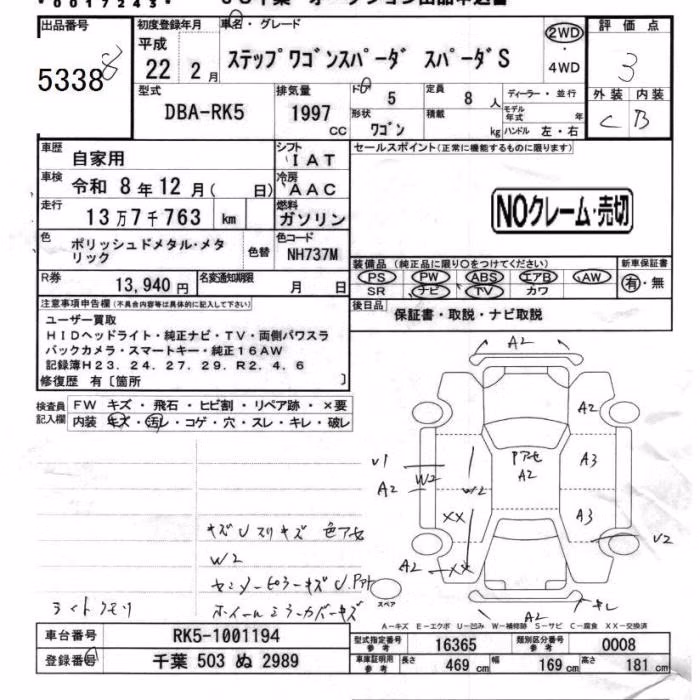 出品番号
53388
初度登録年月
平成
22 2月
車名・グレード
ステップワゴンスパーダ スパーダS
2WD
・
4WD
評価点
3
外装 内装
C B
型式
DBA-RK5
排気量
1997
CC
ドア
5
形状
ワゴン
定員
8 人
積載
kg
ディーラー・並行
モデル年式 年
ハンドル 左・右
車歴
自家用
シフト
IAT
車検
令和 8年12月( 日)
冷房
AAC
走行
13万7千763 km
燃料
ガソリン
色
ポリッシュドメタル・メタリック
色替
色コード
NH737M
R券
13,940円
名変通知期限
月 日
セールスポイント(正常に機能するものに限ります)
NOクレーム・売切
装備品(純正品に限り○をつけてください)
PS PW ABS エアB AW
SR ナビ TV カワ
新車保証書
有・無
後日品
保証書・取説・ナビ取説
注意事項申告欄(不具合内容等は具体的に記入して下さい)
ユーザー買取
HIDヘッドライト・純正ナビ・TV・両側パワスラ
バックカメラ・スマートキー・純正16AW
記録簿H23.24.27.29.R2.4.6
修復歴 有〔箇所 〕
検査員記入欄
FW キズ・飛石・ヒビ割・リペア跡・×要
内装 キズ・汚レ・コゲ・穴・スレ・キレ・破レ
A2
A2
Pアセ
A2
A3
U1
W2
A2
W2
XX
A3
U2
A2
XX
A2
キレ
キズUスリキズ 色アセ
W2
ライトクモリ
スペア
A-キズ E-エクボ U-凹み W-補修跡 S-サビ C-腐食 XX-交換済
車台番号
RK5-1001194
登録番号
千葉 503 ぬ 2989
型式指定番号 参考
16365
類別区分番号 参考
0008
車庫証明用 参考
長さ 469 cm 幅 169 cm 高さ 181 cm